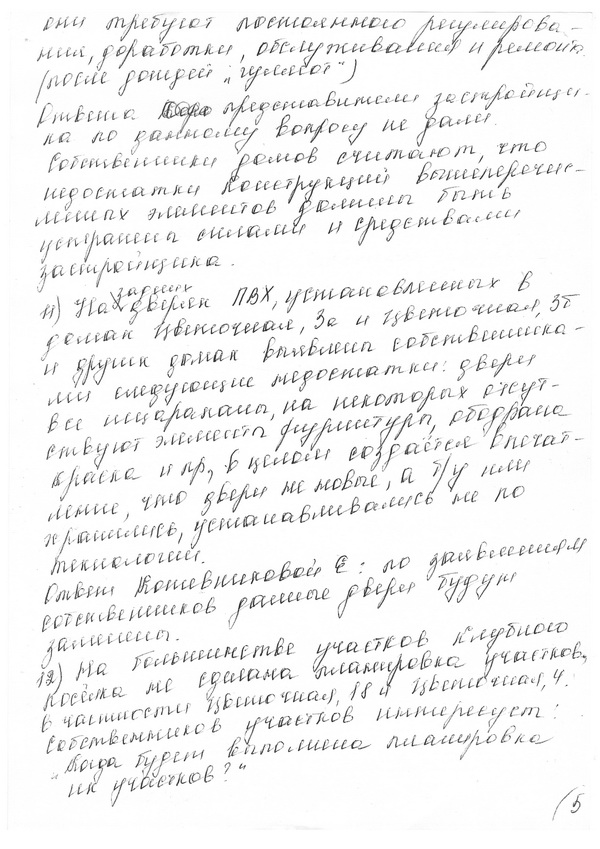 они требуют постоянного регулирова-
ния, доработки, обслуживания и ремонта
(после дождей „гуляют")
Ответа представители застройщи-
ка по данному вопросу не дали.
Собственники домов считают, что
недостатки конструкций вышеперечис-
ленных элементов должны быть
устранены силами и средствами
застройщика.
задних
11) На дверях ПВХ, установленных в
домах Цветочная, 3а и Цветочная, 3б
и других домах выявлены собственника-
ми следующие недостатки: двери
все поцарапаны, на некоторых отсут-
ствуют элементы фурнитуры, ободрана
краска и пр, в целом создаётся впечат-
ление, что двери не новые, а б/у или
хранились, устанавливались не по
технологии.
Ответ Кожевниковой Е: по заявлениям
собственников данные двери будут
заменены.
12) На большинстве участков Клубного
посёлка не сделана планировка участков,
в частности Цветочная, 18 и Цветочная, 4.
Собственников участков интересует:
"Когда будет выполнена планировка
их участков?"
(5